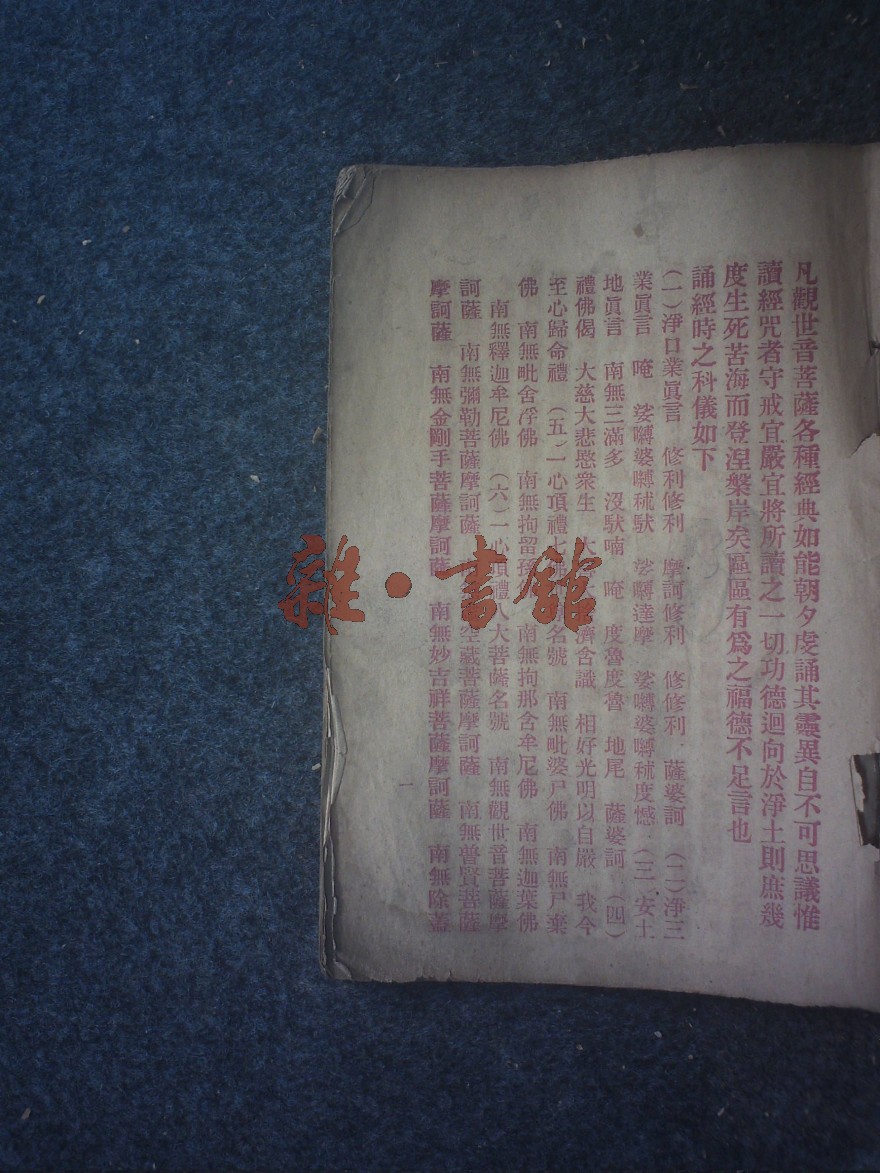 凡觀世音菩薩各種經典如能朝夕虔誦其靈異自不可思議惟
讀經咒者守戒宜嚴宜將所讀之一切功德迴向於淨土則庶幾
度生死苦海而登涅槃岸矣區區有爲之福德不足言也
誦經時之科儀如下
(一)淨口業眞言 修利修利 摩訶修利 修修利 薩婆訶 (二)淨三
業眞言 唵 娑嚩婆嚩秫馱 娑嚩達摩 娑嚩婆嚩秫度憾 (三)安土
地眞言 南無三滿多 沒馱喃 唵 度魯度魯 地尾 薩婆訶 (四)
禮佛偈 大慈大悲愍衆生 大 濟含識 相好光明以自嚴 我今
至心歸命禮 (五)一心頂禮七 名號 南無毗婆尸佛 南無尸棄
佛 南無毗舍浮佛 南無拘留孫 南無拘那含牟尼佛 南無迦葉佛
南無釋迦牟尼佛 (六)一心頂禮八大菩薩名號 南無觀世音菩薩摩
訶薩 南無彌勒菩薩摩訶薩 空藏菩薩摩訶薩 南無普賢菩薩
摩訶薩 南無金剛手菩薩摩訶薩 南無妙吉祥菩薩摩訶薩 南無除蓋
一
雜·書館